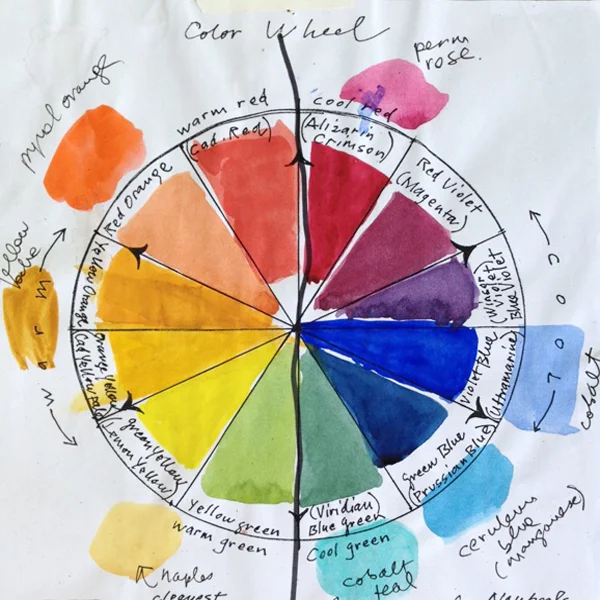 Color Wheel
perm
rose.
pyrol orange
warm red
(Cad. Red)
cool red
(Alizarin
Crimson)
Red Violet
(Magenta)
Red Orange
Yellow Orange
Orange Yellow
Cad Yellow
green Yellow
(Lemon Yellow)
Yellow green
warm green
(Viridian)
Blue green
Cool green
Green Blue
(Prussian Blue)
Violet Blue
(Ultramarine)
Violet
Blue Violet
warm
cool
cobalt
cerulean
blue
(manganese)
cobalt
teal
Naples